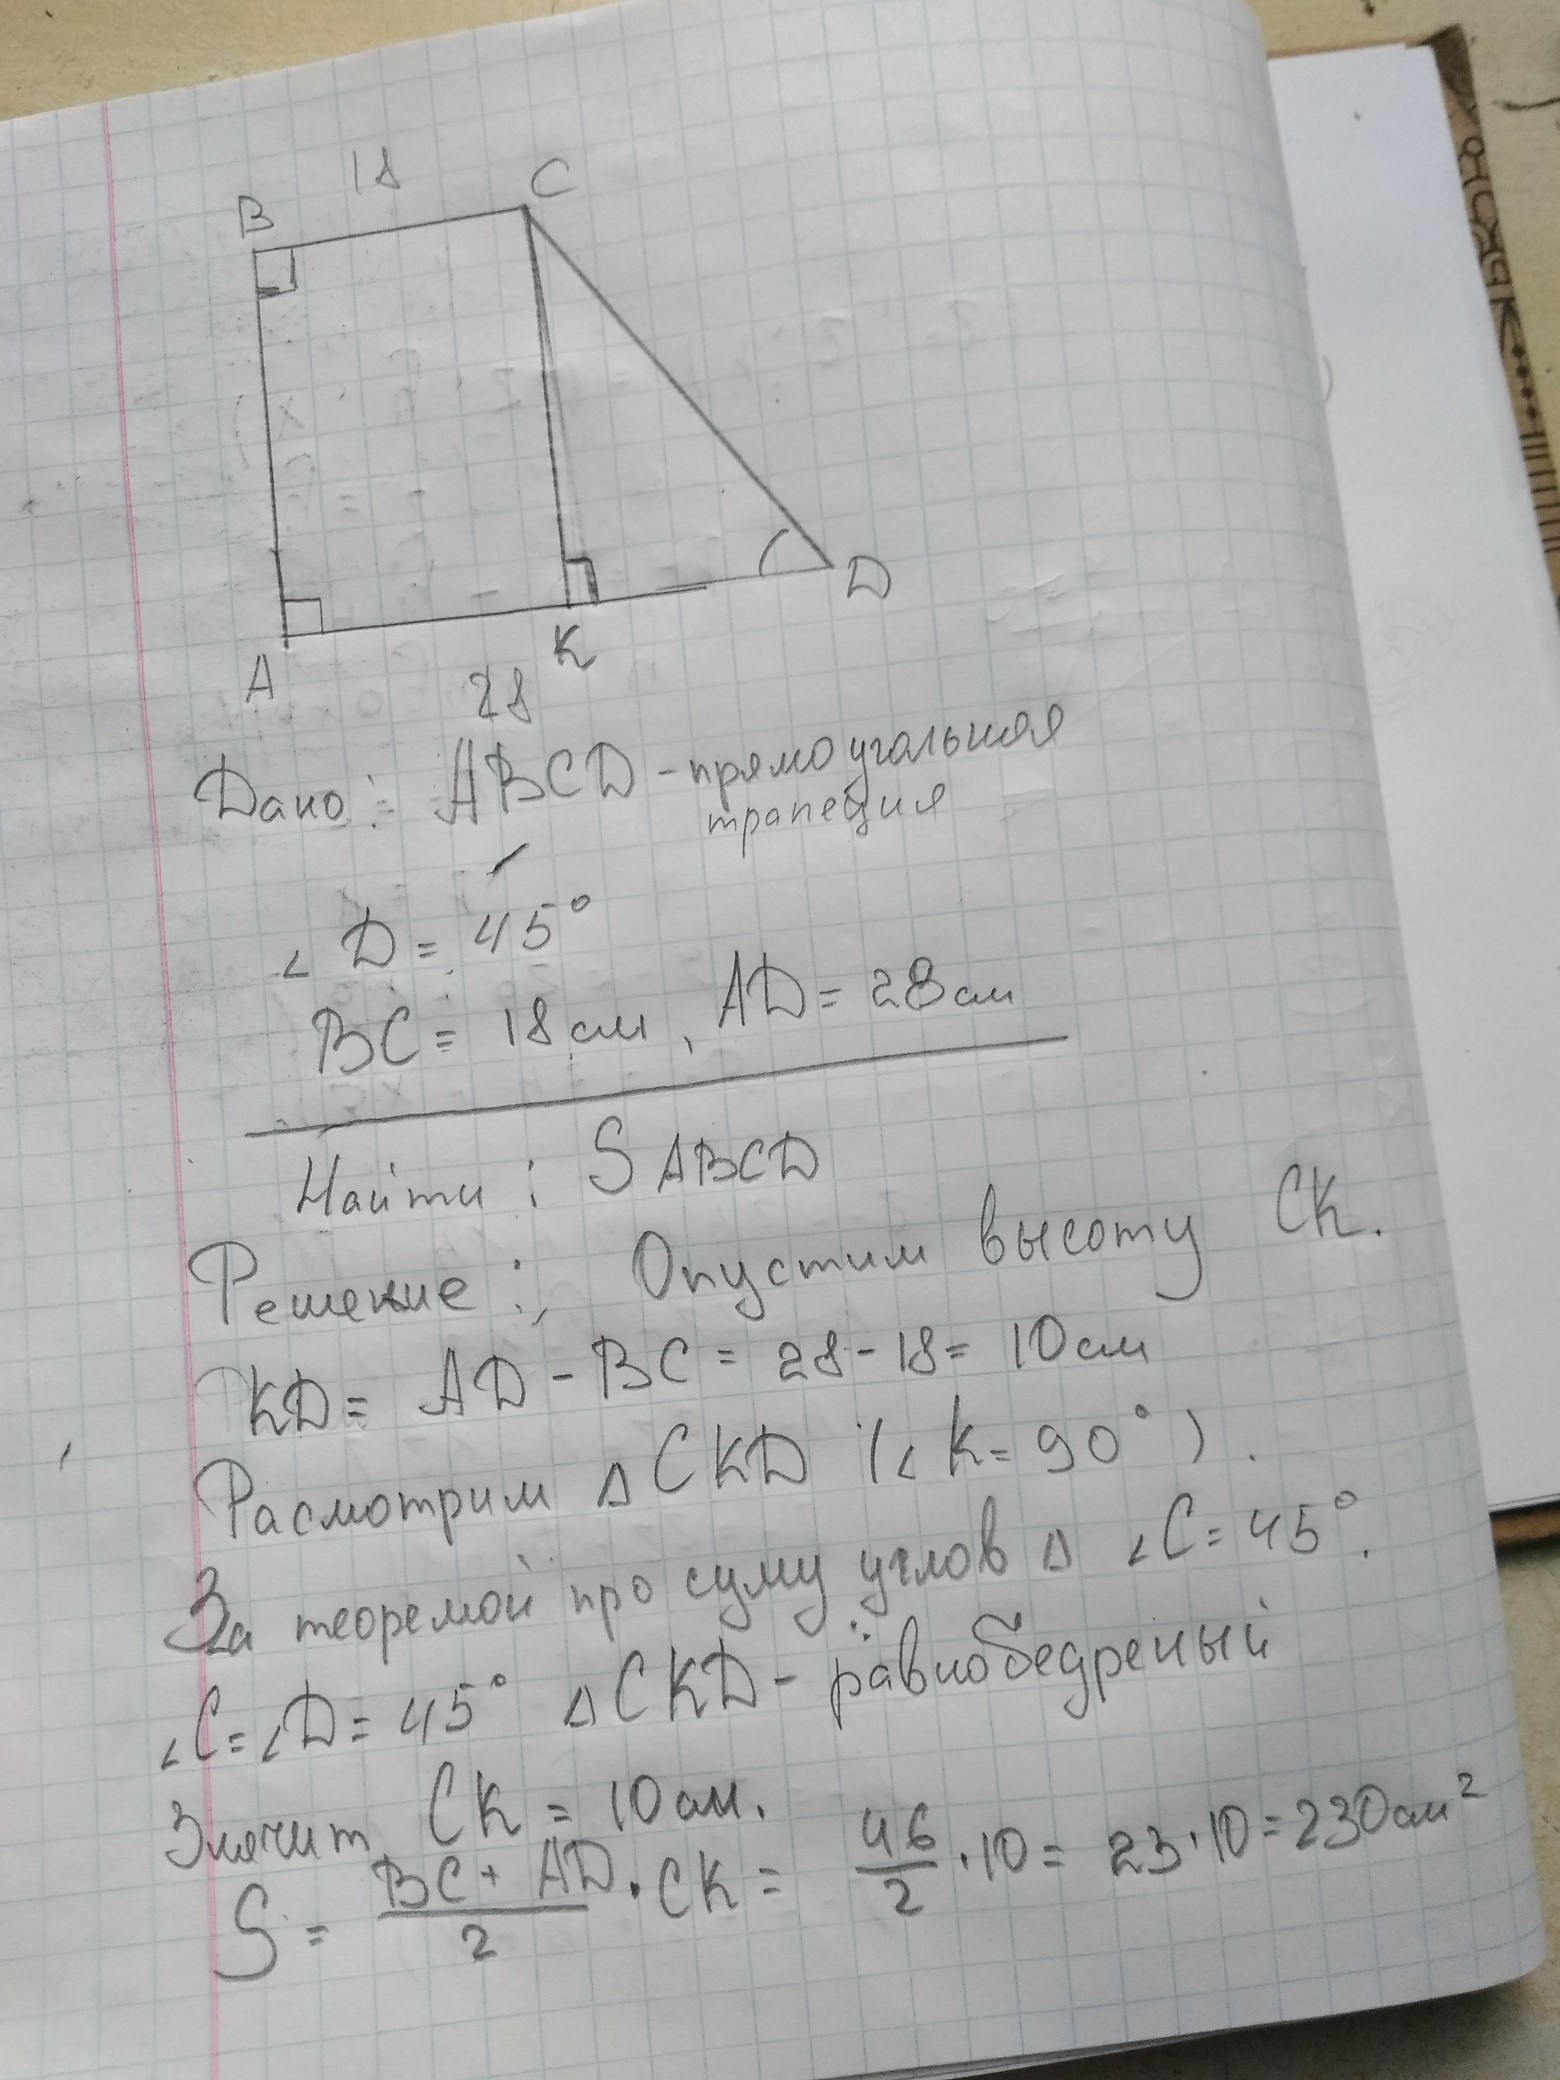 18
B C
A K D
28
Дано: ABCD - прямоугольная
трапеция
∠D = 45°
BC = 18 см, AD = 28 см
Найти: S ABCD
Решение: Опустим высоту CK.
KD = AD - BC = 28 - 18 = 10 см
Расмотрим △ CKD (∠K = 90°).
За теоремой про суму углов △ ∠C = 45°.
∠C = ∠D = 45° △ CKD - равнобедреный
Значит CK = 10 см.
S = (BC + AD)/2 · CK = 46/2 · 10 = 23 · 10 = 230 см²